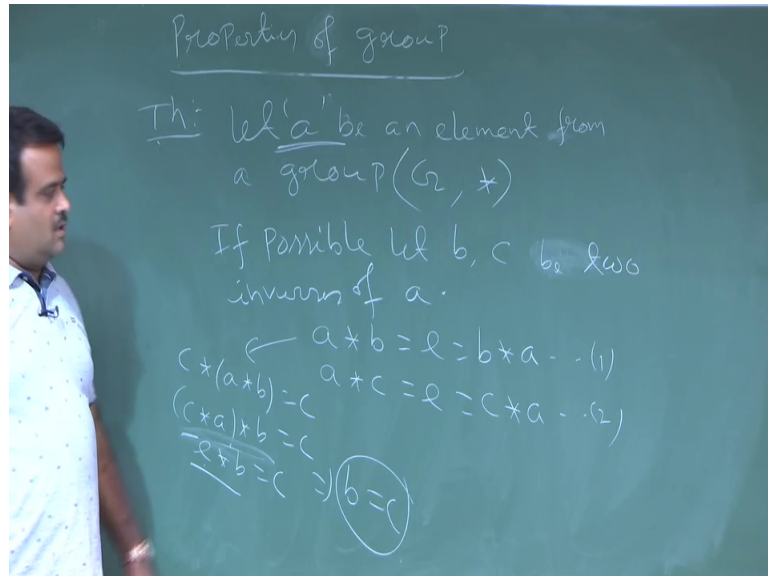 Properties of group
Th: Let "a" be an element from
a group (G, *)
If Possible let b, c be two
inverses of a.
a * b = e = b * a - - (1)
a * c = e = c * a - - (2)
c * (a * b) = c
(c * a) * b = c
e * b = c ⇒ b = c